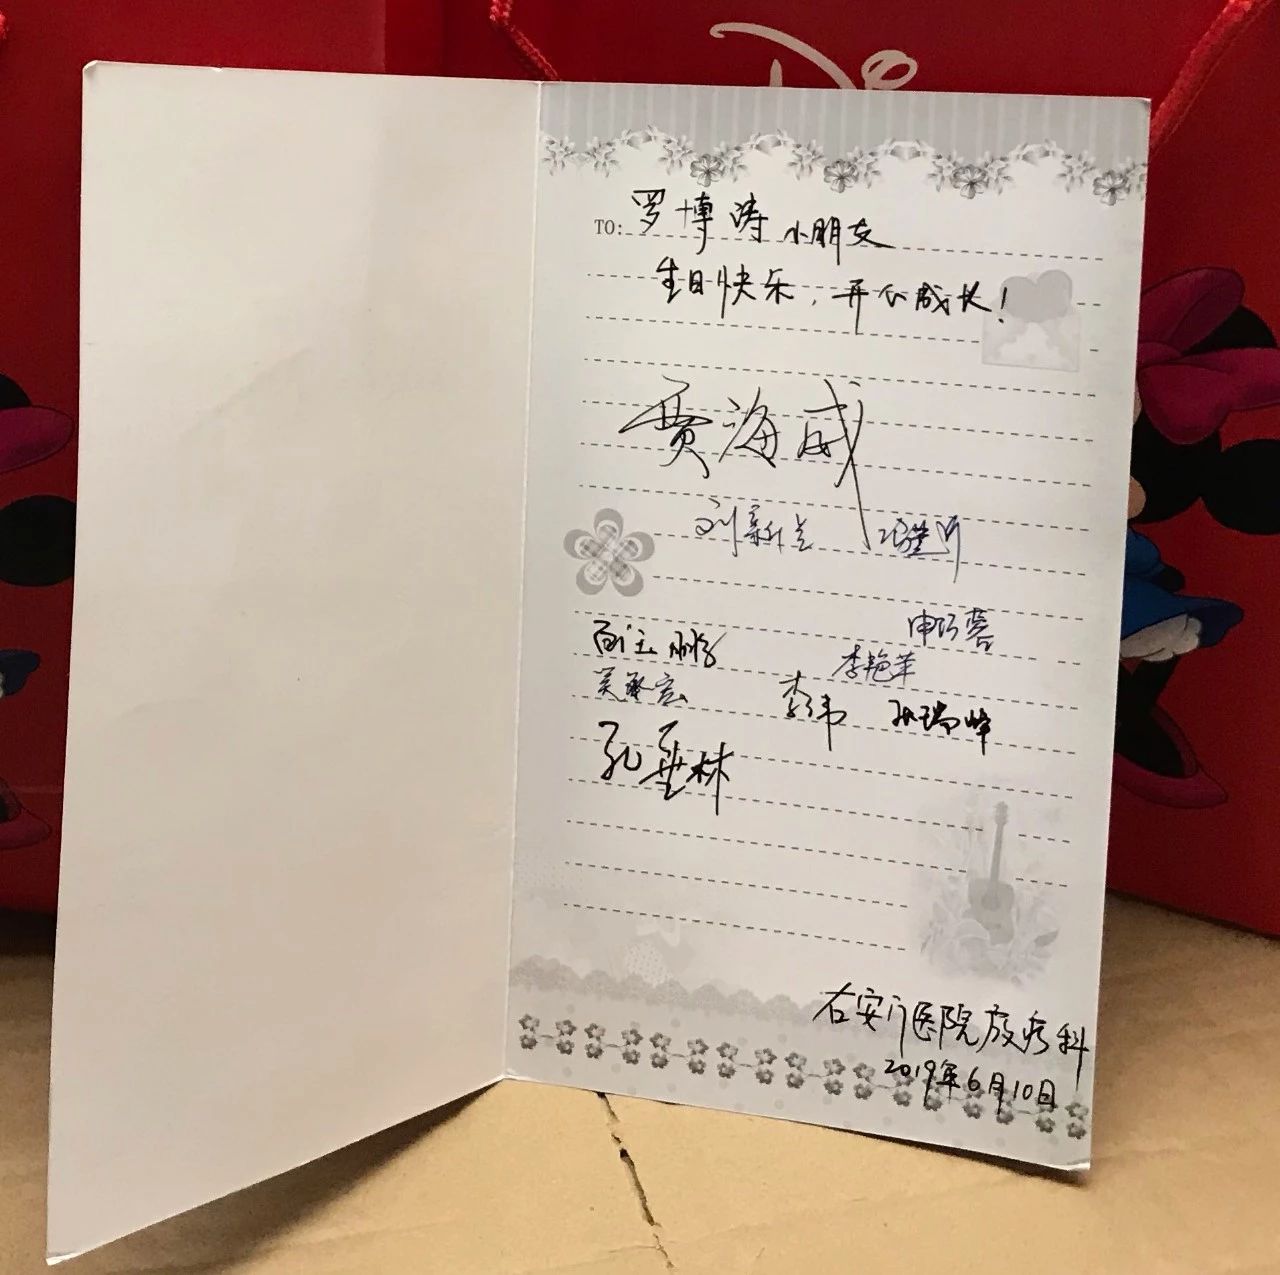 Di
TO: 罗博涛小朋友
生日快乐，开心成长！
贾海威
刘新兰
申巧蓉
李艳苹
李伟 孙瑞峰
孔垂林
右安门医院放疗科
2019年6月10日